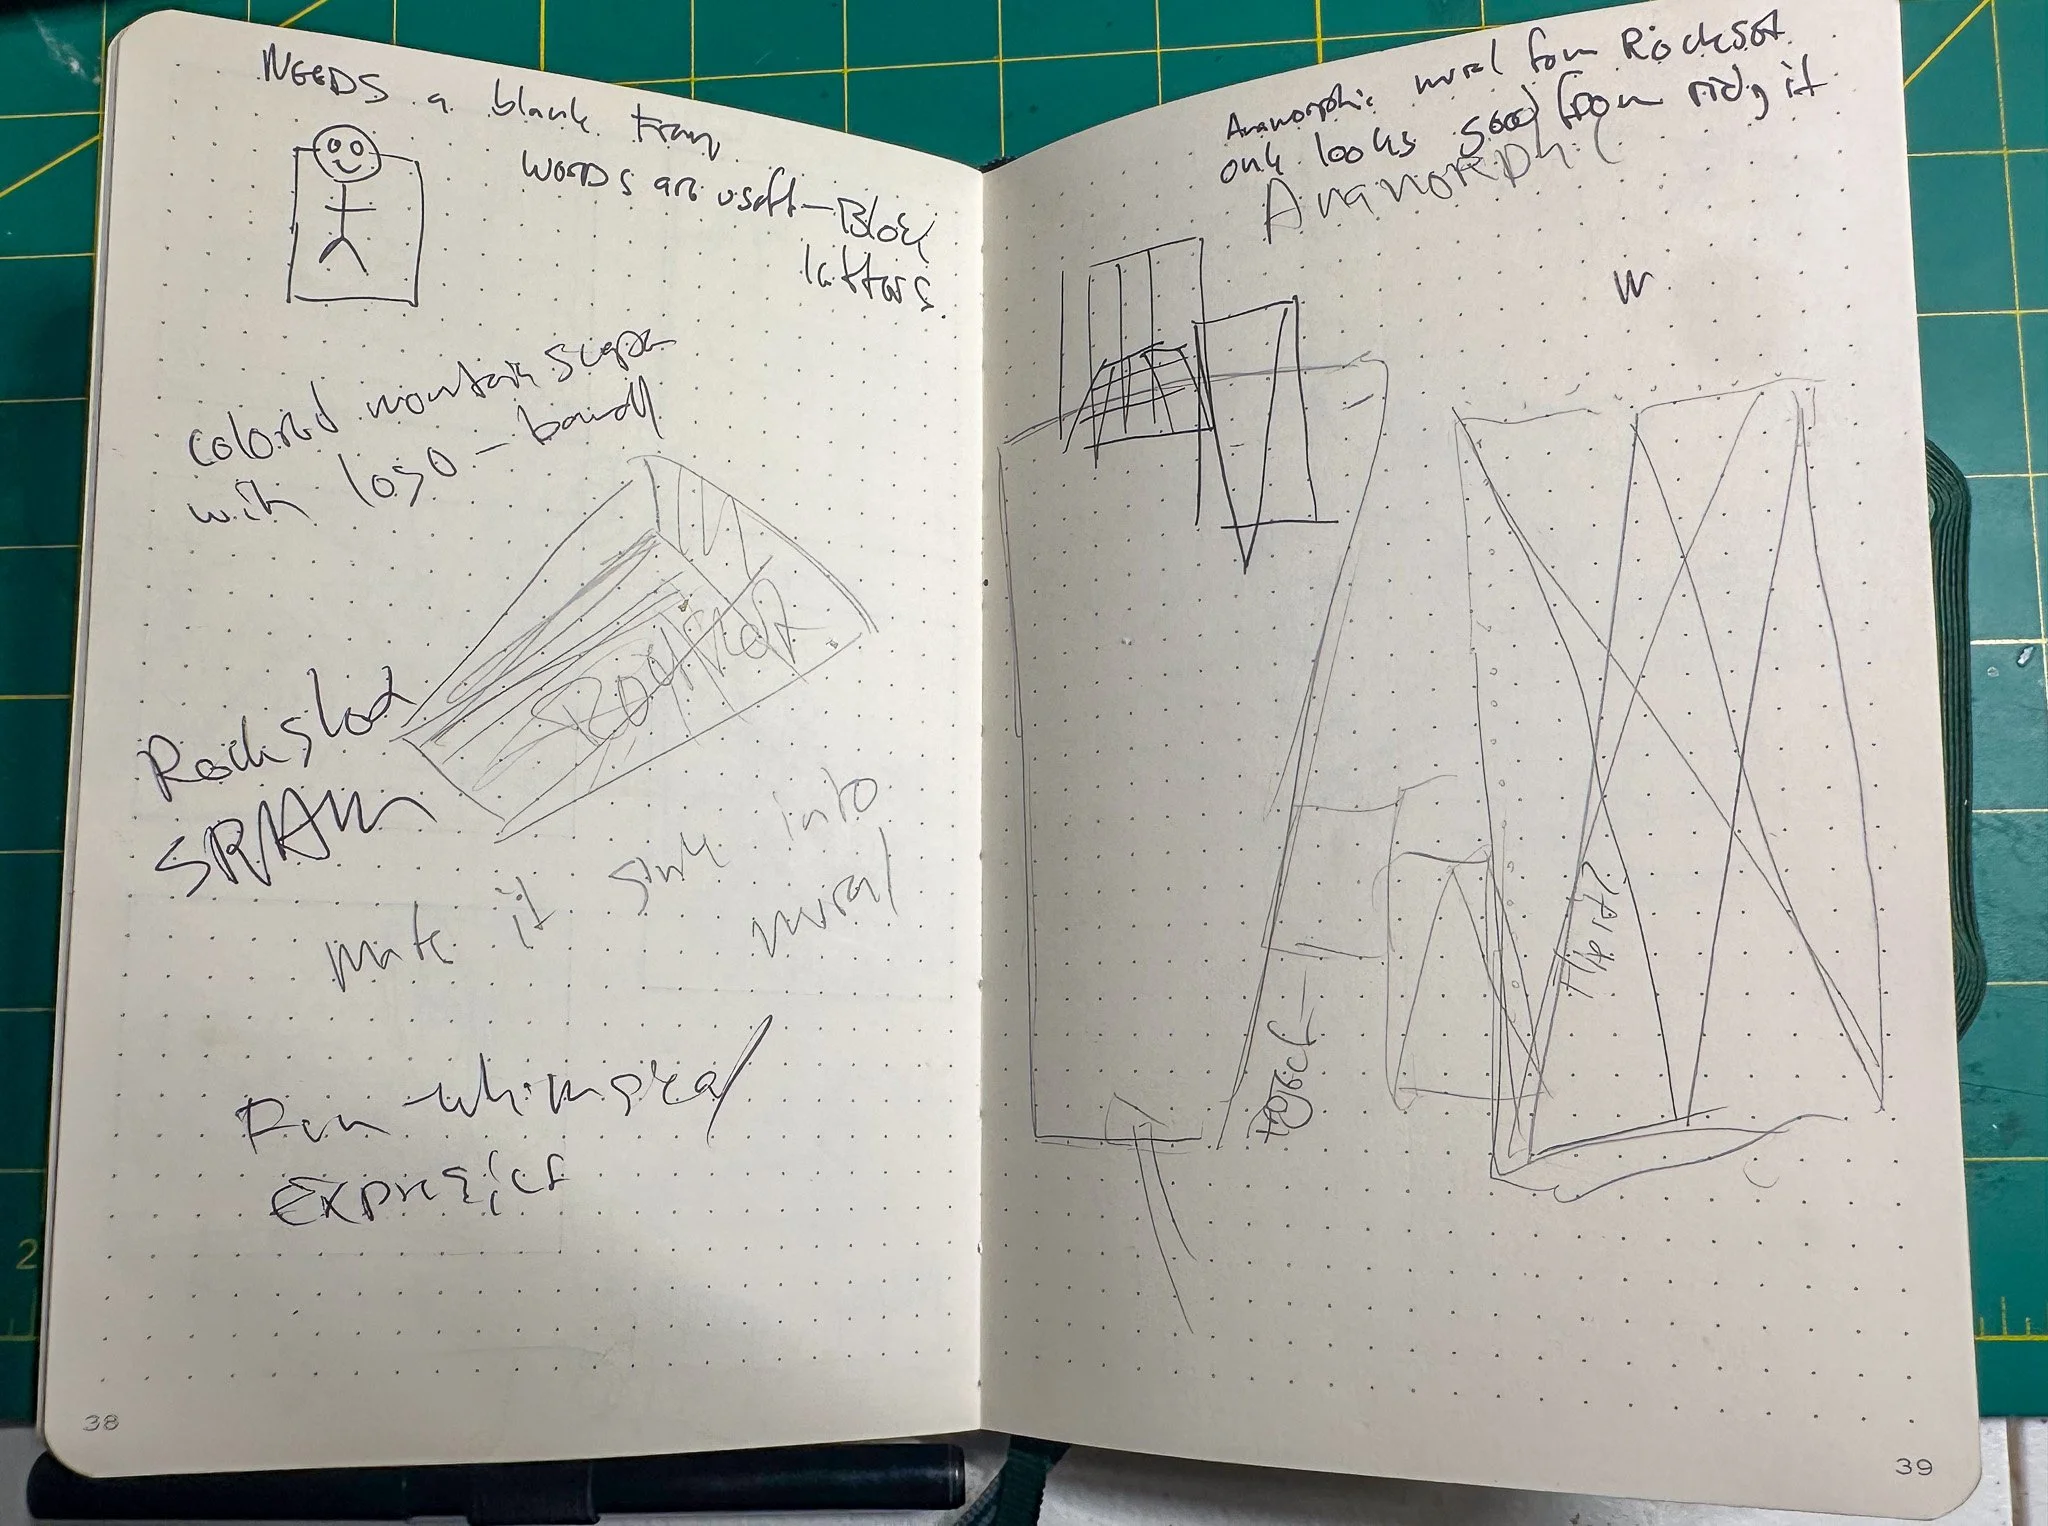 NEEDS a blank
words are useft - Block
letters.
colored mountain scape
with logo -
Rockslod
SRAM
make it sink into
mural
Fun - whimsical
Anamorphic mural from Rockset
only looks good from riding it
Anamorphic
W
Flip it?
38
39
2